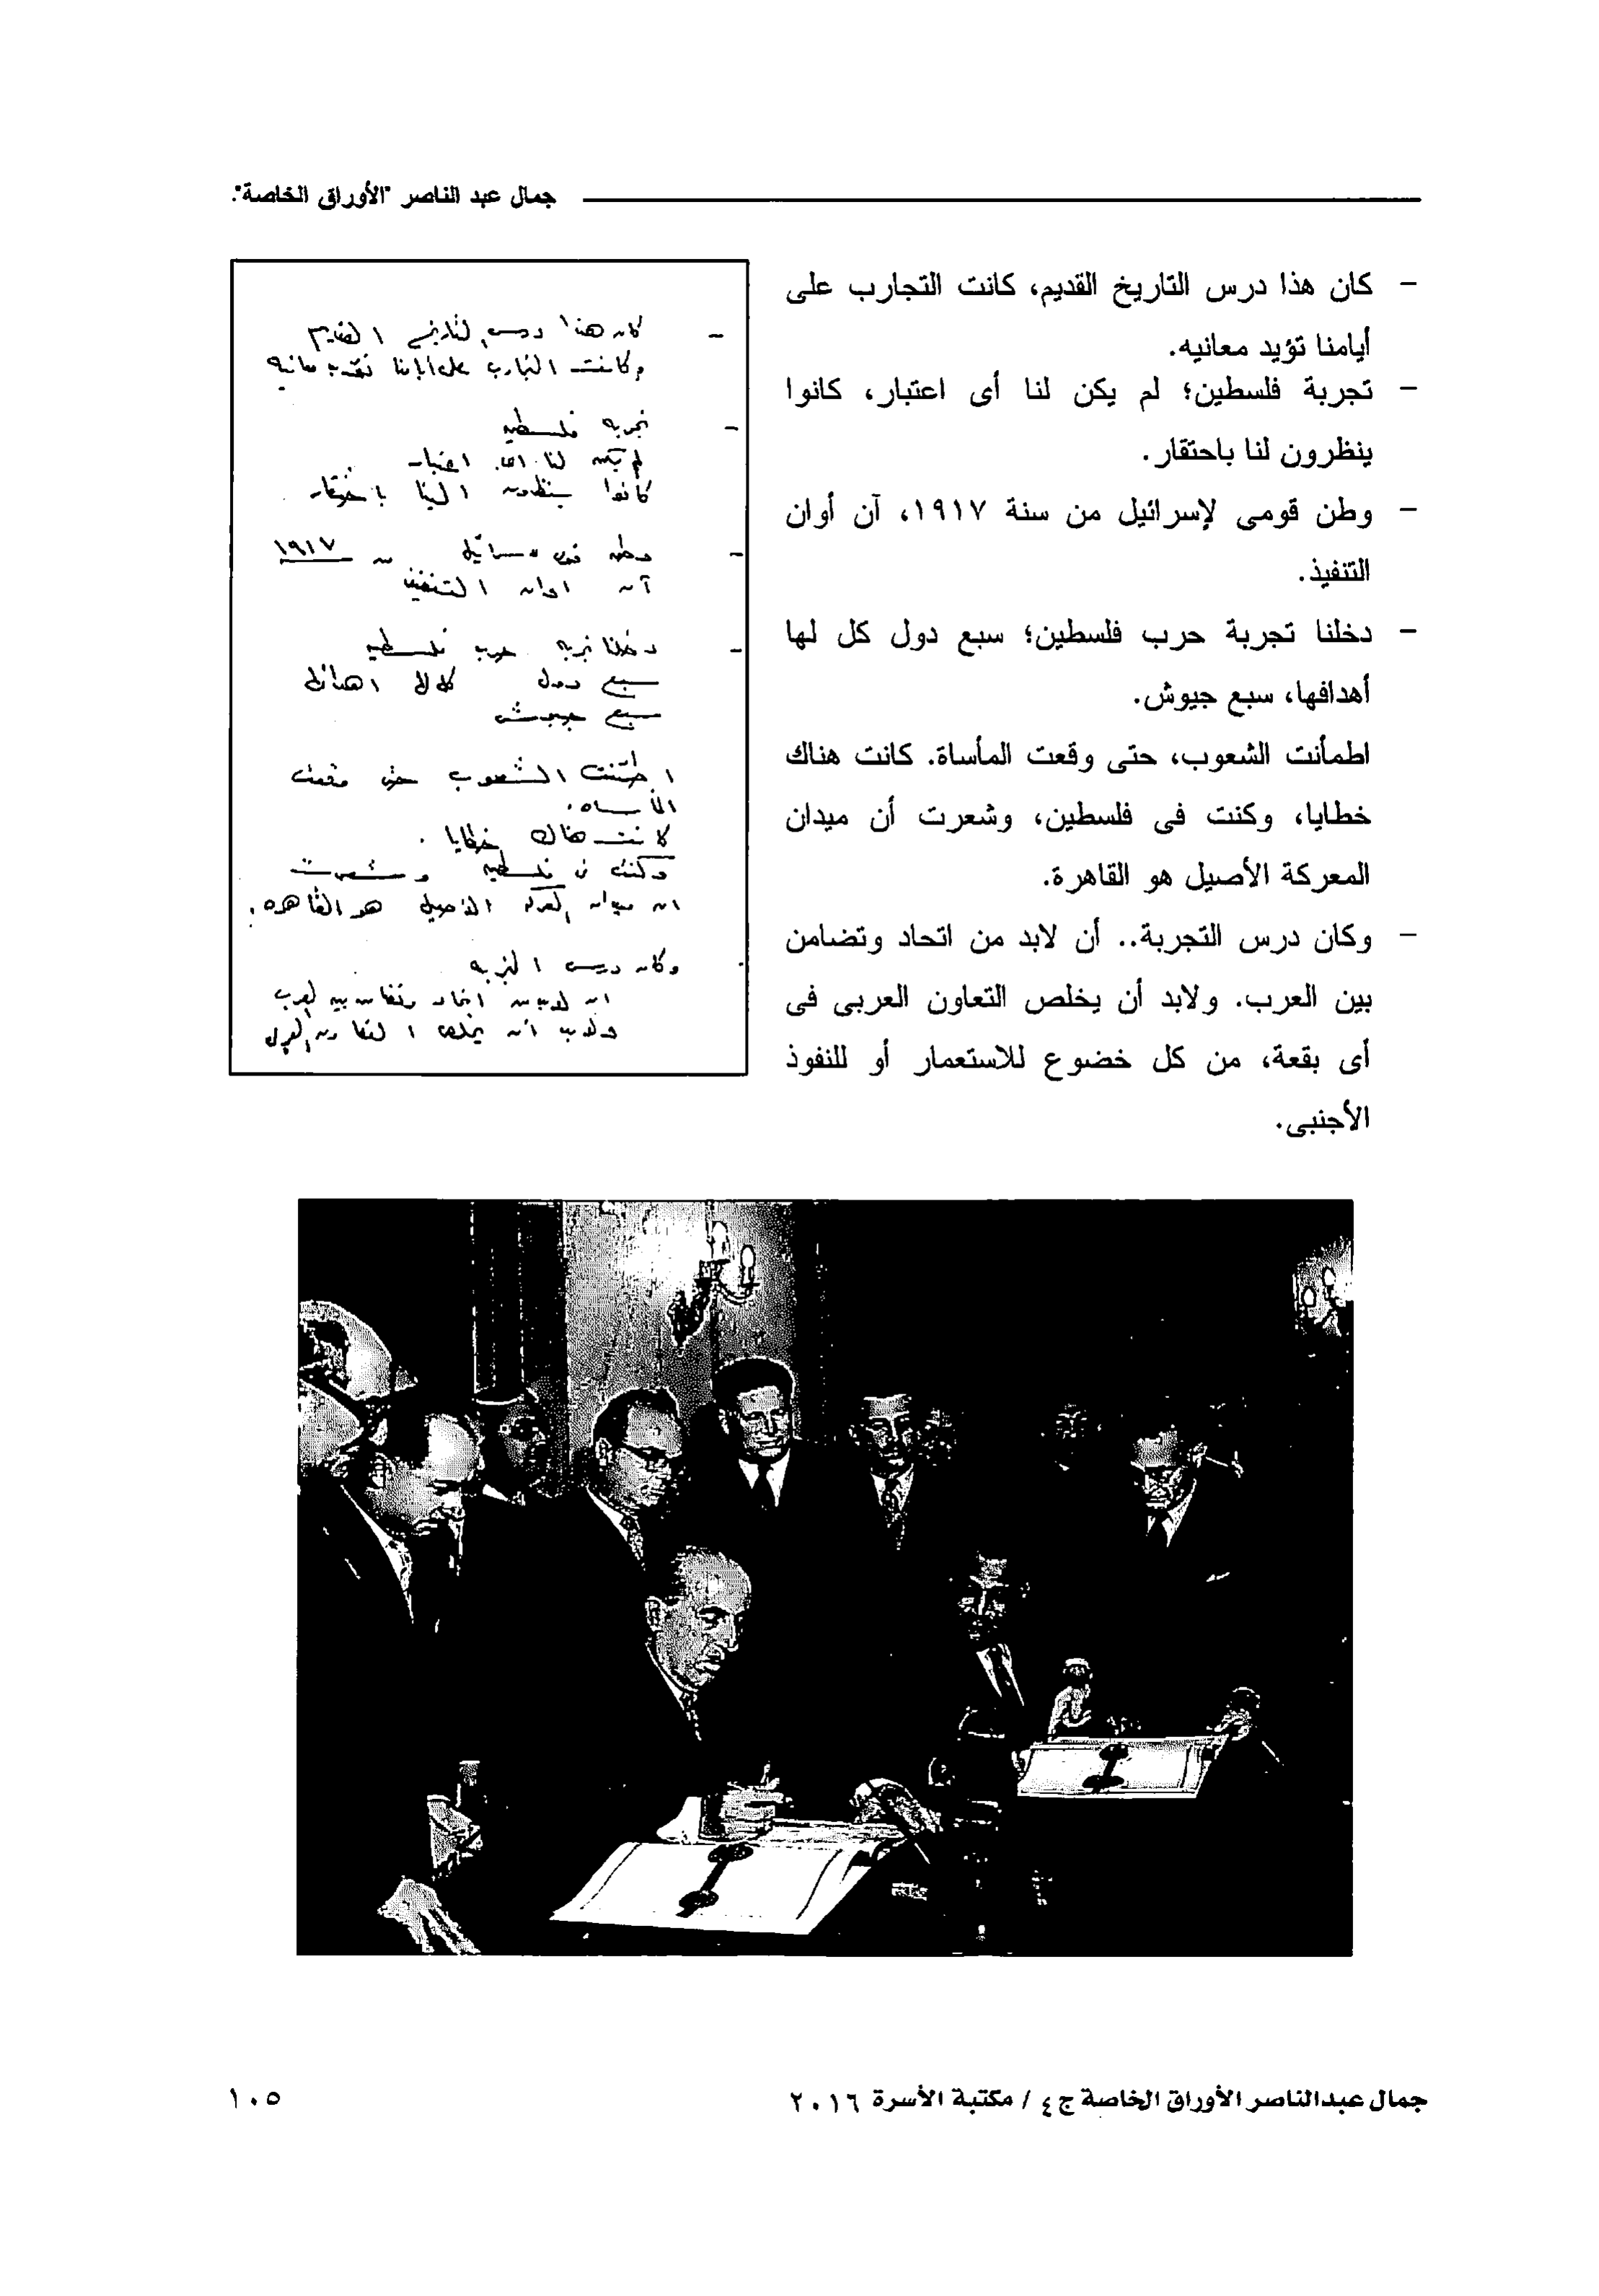 جمال عبد الناصر "الأوراق الخاصة".
- كان هذا درس التاريخ القديم، كانت التجارب على
أيامنا تؤيد معانيه.
- تجربة فلسطين؛ لم يكن لنا أى اعتبار، كانوا
ينظرون لنا باحتقار.
- وطن قومى لإسرائيل من سنة ١٩١٧، آن أوان
التنفيذ.
- دخلنا تجربة حرب فلسطين؛ سبع دول كل لها
أهدافها، سبع جيوش.
اطمأنت الشعوب، حتى وقعت المأساة. كانت هناك
خطايا، وكنت فى فلسطين، وشعرت أن ميدان
المعركة الأصيل هو القاهرة.
- وكان درس التجربة.. أن لابد من اتحاد وتضامن
بين العرب. ولابد أن يخلص التعاون العربى فى
أى بقعة، من كل خضوع للاستعمار أو للنفوذ
الأجنبى.
- كان هذا درس التاريخ القديم
وكانت التجارب على أيامنا تؤيد معانيه
- تجربه فلسطين
لم يكن لنا اى اعتبار
كانوا ينظرون الينا باحتقار
- وطن قومى لاسرائيل ١٩١٧
آن اوان التنفيذ
- دخلنا تجربه حرب فلسطين
سبع دول كل لها اهدافها
سبع جيوش
اطمئنت الشعوب حتى وقعت
المأساه.
كانت هناك خطايا.
وكنت فى فلسطين وشعرت
ان ميدان المعركه الاصيل هو القاهره.
وكان درس التجربه
ان لابد من اتحاد وتضامن بين العرب
ولابد أن يخلص التعاون العربى
جمال عبدالناصر الأوراق الخاصة ج٤ / مكتبة الأسرة ٢٠١٦
١٠٥